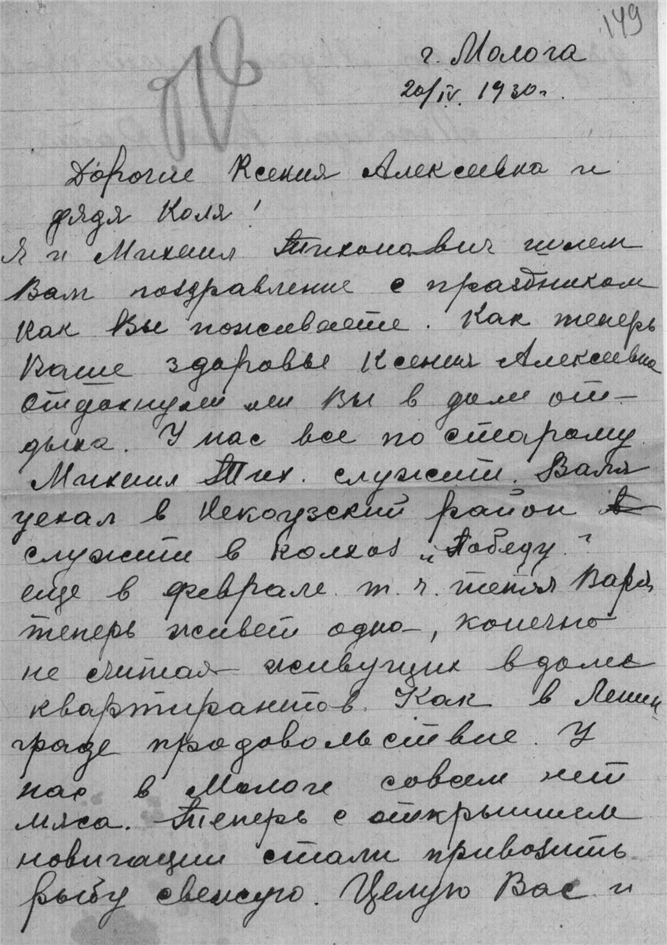 149
г. Молога
20/IV. 1930 г.
Дорогие Ксения Алексеевна и
дядя Коля!
Я и Михаил Тихонович шлем
Вам поздравление с праздником
Как Вы поживаете. Как теперь
Ваше здоровье Ксения Алексеевна
отдохнули ли Вы в доме от-
дыха. У нас все по старому
Михаил Тих. служит. Валя
уехал в Некоузский район
служит в колхоз „Победу"
еще в феврале т. ч. тетя Варя
теперь живет одна, конечно
не считая живущих в доме
квартирантов. Как в Ленин
граде продовольствие. У
нас в Мологе совсем нет
мяса. Теперь с открытием
новигации стали привозить
рыбу свежую. Целую Вас и